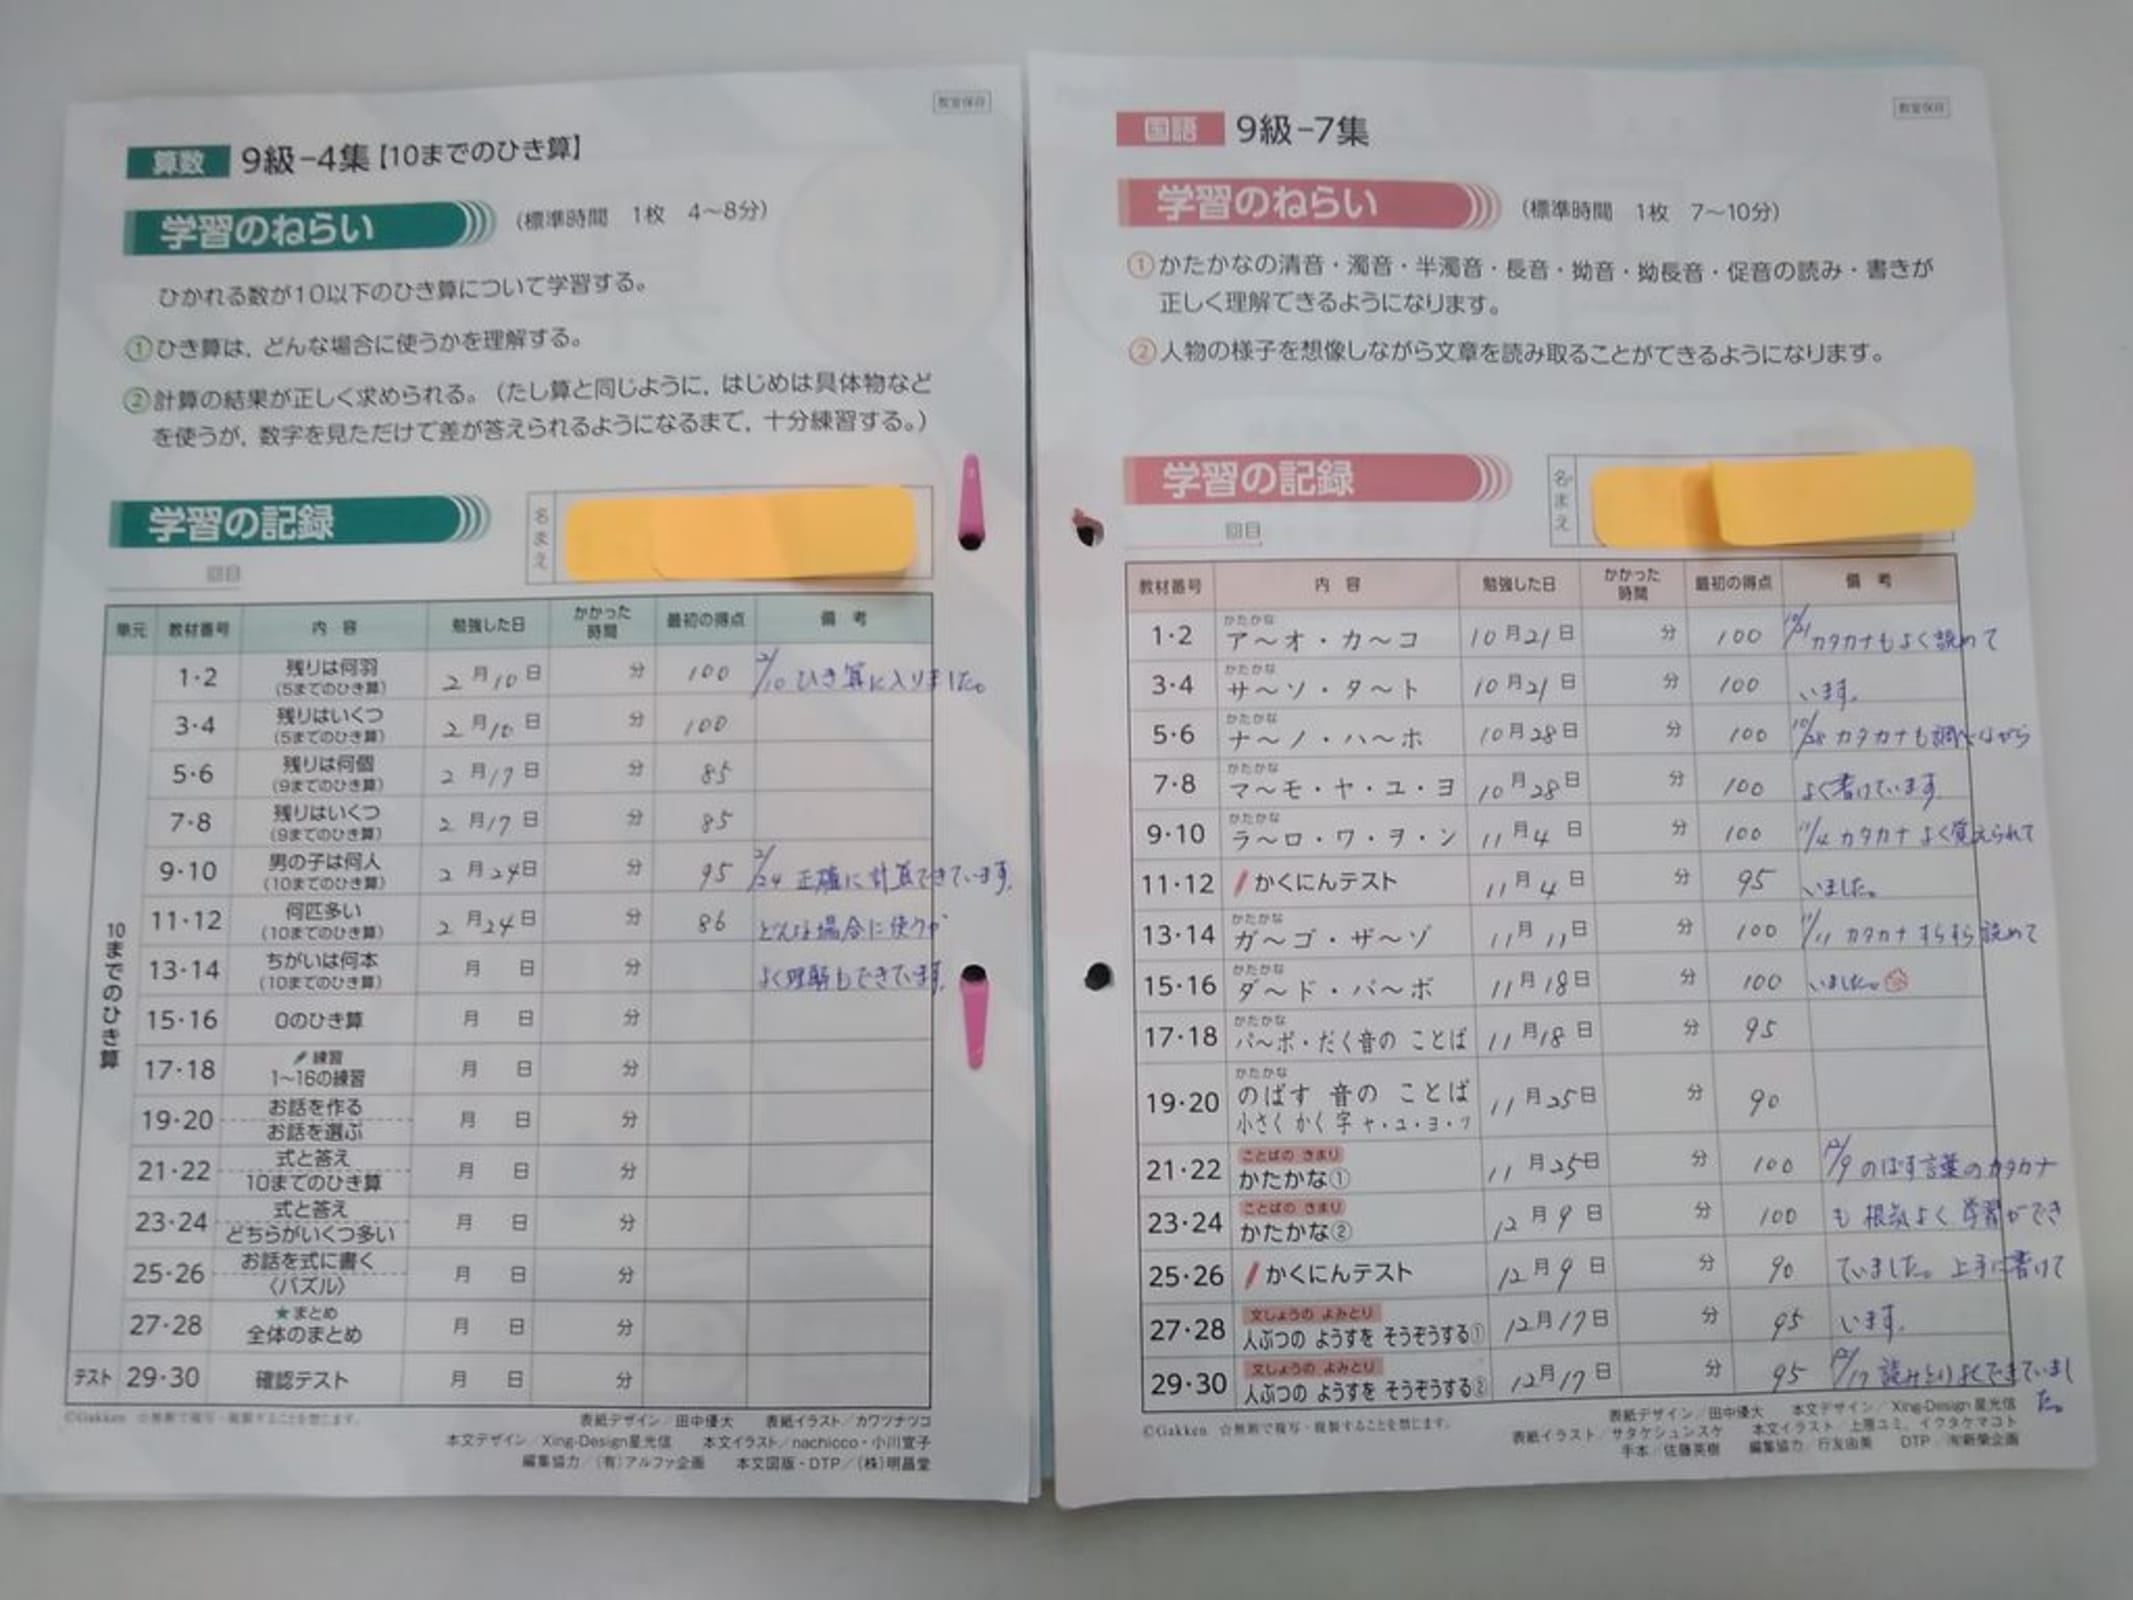 教室保存
算数 9級-4集【10までのひき算】
学習のねらい (標準時間 1枚 4〜8分)
ひかれる数が10以下のひき算について学習する。
①ひき算は，どんな場合に使うかを理解する。
②計算の結果が正しく求められる。(たし算と同じように，はじめは具体物など
を使うが，数字を見ただけで差が答えられるようになるまで，十分練習する。)
学習の記録
名まえ
回目
単元 教材番号 内容 勉強した日 かかった時間 最初の得点 備考
10までのひき算
1・2 残りは何羽 (5までのひき算) 2月10日 分 100 2/10 ひき算に入りました。
3・4 残りはいくつ (5までのひき算) 2月10日 分 100
5・6 残りは何個 (9までのひき算) 2月17日 分 85
7・8 残りはいくつ (9までのひき算) 2月17日 分 85
9・10 男の子は何人 (10までのひき算) 2月24日 分 95 2/24 正確に計算できています。
11・12 何匹多い (10までのひき算) 2月24日 分 86 どんな場合に使うか
13・14 ちがいは何本 (10までのひき算) 月 日 分 よく理解もできています。
15・16 0のひき算 月 日 分
17・18 練習 1〜16の練習 月 日 分
19・20 お話を作る お話を選ぶ 月 日 分
21・22 式と答え 10までのひき算 月 日 分
23・24 式と答え どちらがいくつ多い 月 日 分
25・26 お話を式に書く 〈パズル〉 月 日 分
27・28 ★まとめ 全体のまとめ 月 日 分
テスト 29・30 確認テスト 月 日 分
©Gakken ☆無断で複写・複製することを禁じます。
表紙デザイン／田中優大 表紙イラスト／カワツナツコ
本文デザイン／Xing-Design星光信 本文イラスト／nachicco・小川宣子
編集協力／(有)アルファ企画 本文図版・DTP／(株)明昌堂
教室保存
国語 9級-7集
学習のねらい (標準時間 1枚 7〜10分)
①かたかなの清音・濁音・半濁音・長音・拗音・拗長音・促音の読み・書きが
正しく理解できるようになります。
②人物の様子を想像しながら文章を読み取ることができるようになります。
学習の記録
名まえ
回目
教材番号 内容 勉強した日 かかった時間 最初の得点 備考
1・2 かたかな ア〜オ・カ〜コ 10月21日 分 100 10/21 カタカナもよく読めて
3・4 かたかな サ〜ソ・タ〜ト 10月21日 分 100 います。
5・6 かたかな ナ〜ノ・ハ〜ホ 10月28日 分 100 10/28 カタカナも調べながら
7・8 かたかな マ〜モ・ヤ・ユ・ヨ 10月28日 分 100 よく書けています
9・10 かたかな ラ〜ロ・ワ・ヲ・ン 11月4日 分 100 11/4 カタカナよく覚えられて
11・12 かくにんテスト 11月4日 分 95 いました。
13・14 かたかな ガ〜ゴ・ザ〜ゾ 11月11日 分 100 11/11 カタカナすらすら読めて
15・16 かたかな ダ〜ド・バ〜ボ 11月18日 分 100 いました。
17・18 かたかな パ〜ポ・だく音の ことば 11月18日 分 95
19・20 かたかな のばす 音の ことば 小さく かく 字 ャ・ュ・ョ・ッ 11月25日 分 90
21・22 ことばの きまり かたかな① 11月25日 分 100 12/9 のばす言葉のカタカナ
23・24 ことばの きまり かたかな② 12月9日 分 100 も 根気よく 学習ができ
25・26 かくにんテスト 12月9日 分 90 ていました。上手に書けて
27・28 文しょうの よみとり 人ぶつの ようすを そうぞうする① 12月17日 分 95 います。
29・30 文しょうの よみとり 人ぶつの ようすを そうぞうする② 12月17日 分 95 12/17 読みとりよくできていまし
た。
©Gakken ☆無断で複写・複製することを禁じます。
表紙デザイン／田中優大 本文デザイン／Xing-Design星光信
表紙イラスト／サタケシュンスケ 本文イラスト／上原ユミ，イクタケマコト
手本／佐藤英樹 編集協力／行友由美 DTP／㈲新榮企画